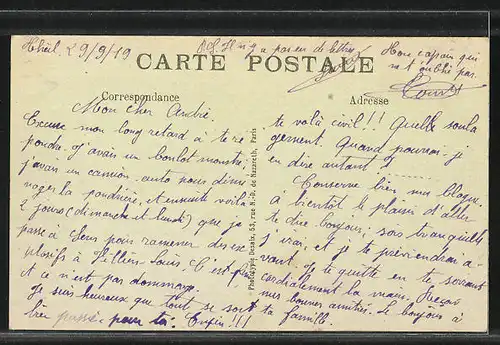 29/9/19
P.S. Il n'y a pas eu de lettres
Mon copain qui
CARTE POSTALE
m'a oublié pas.
Correspondance
Adresse
Mon cher André.
Excuse mon long retard à te ré
pondre. J'avais un boulot monstre.
J'avais un camion auto pour démé
nager la poudrière, et ensuite voilà
2 jours (dimanche et lundi) que je
passe à Sens pour ramener des ex
plosifs à St Louis. C'est fini
et ce n'est pas dommage.
Je suis heureux que tout se soit
bien passé pour toi. Enfin!!!
Phototypie Desaix, 53, rue N.-D. de Nazareth, Paris
te voilà civil!! Quelle soula
gement. Quand pourrai-je
en dire autant?
Conserve bien mes blagues,
à bientôt le plaisir d'aller
te dire bonjour; sois tranquille
j'irai, et je te préviendrai a-
vant. Je te quitte en te serrant
cordialement la main. Reçois
mes bonnes amitiés. Le bonjour à
ta famille.